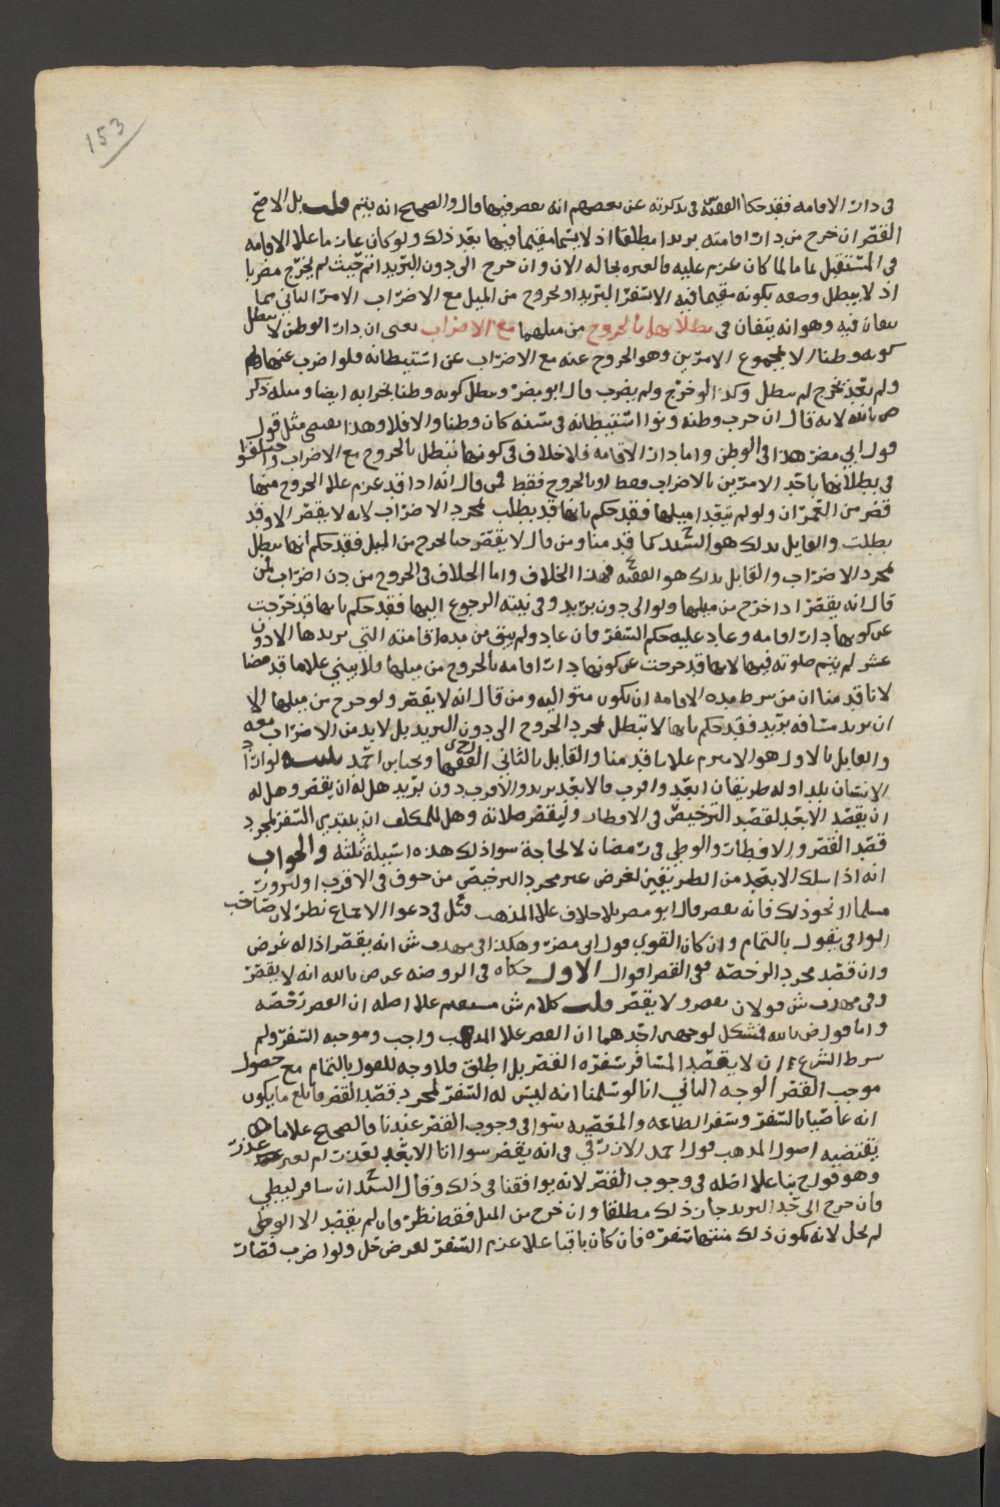 153
في دار الاقامه فقد حكا الفقيه في تذكرته عن بعضهم انه يقصر فيها قال والصحيح انه يتم قلت بل الاصح
القصر ان خرج من دار اقامته بريدا مطلقا اذ لا يسما مقيما فيها بعد ذلك ولو كان عازما على الاقامه
في المستقبل لما كان عزم عليه فالعبره بحاله الان وان خرج الى دون البريد اتم حيث لم يخرج مضربا
اذ لا يبطل وصفه بكونه مقيما فيه الا بسفر البريد او الخروج من الميل مع الاضراب الامر الثاني مما
يتفقان فيه وهو انه يتفقان في بطلانهما بالخروج من ميلهما مع الاضراب يعني ان دار الوطن لا يبطل
كونه وطنا الا بمجموع الامرين وهو الخروج عنه مع الاضراب عن استيطانه فلو اضرب عنها ولم
ولم يخرج لم تبطل وكذا لو خرج ولم يضرب قال ابو مضر ويبطل كونه وطنا بخرابه ايضا ومثله ذكر
ص بالله لانه قال ان خرب وطنه ونوا استيطانه في سنه كان وطنا والا فلا وهذا يقتضي مثل قول
قول ابي مضر هذا في الوطن واما دار الاقامه فلا خلاف في كونها تبطل بالخروج مع الاضراب واختلفوا
في بطلانها باحد الامرين بالاضراب فقط او بالخروج فقط فمن قال انه اذا قد عزم على الخروج منها
قصر من العمران ولو لم يتعد ميلها فقد حكم بانها قد بطلت بمجرد الاضراب لانه لا يقصر الا وقد
بطلت والقايل بذلك هو السيد كما قدمنا ومن قال لا يقصر حتى يخرج من الميل فقد حكم انها تبطل
بمجرد الاضراب والقايل بذلك هو الفقيه فهذا الخلاف واما الخلاف في الخروج من دون اضراب فمن
قال انه يقصر اذا خرج من ميلها ولو الى دون بريد وفي نيته الرجوع اليها فقد حكم بانها قد خرجت
عن كونها دار اقامه وعاد عليه حكم السفر فان عاد ولم يبق من مده اقامته التي يريدها الا دون
عشر لم يتم صلوته فيها لانها قد خرجت عن كونها دار اقامه بالخروج من ميلها ولا يبني على ما قد مضا
لانا قدمنا ان من شرط مده الاقامه ان تكون متواليه ومن قال انه لا يقصر ولو خرج من ميلها الا
ان يريد مسافه بريد فقد حكم بانها لا تبطل بمجرد الخروج الى دون البريد بل لا بد من الاضراب معه
والقايل بالاول هو الامير م على ما قدمنا والقايل بالثاني الفقها ح ي ويحيا بن احمد تنبيه لو اراد
الانسان بلدا وله طريقان ابعد واقرب فالابعد بريد والاقرب دون بريد هل له ان يقصر وهل له
ان يقصد الابعد لقصد الترخيص في الافطار وليقصر صلاته وهل للمكلف ان يبتدي السفر لمجرد
قصد القصر والافطار والوطي في رمضان لا لحاجة سوا ذلك هذه اسيلة ثلثه والجواب
انه اذا سلك الابعد من الطريقين لغرض غير مجرد الترخيص من خوف في الاقرب او ليزور
مسلما او نحو ذلك فانه يقصر قال ابو مضر بلا خلاف على المذهب قيل في دعوا الاجماع نظر لان صاحب
الوافي يقول بالتمام وان كان القوي قول ابي مضر وهكذا في مهذب ش انه يقصر اذا له غرض
وان قصد مجرد الرخصه ففي القصر اقوال الاول حكاه في الروضه عن ص بالله انه لا يقصر
وفي مهذب ش قولان يقصر ولا يقصر قلت كلام ش مستقيم على اصله ان القصر رخصه
واما قول ص بالله فمشكل لوجهين احدهما ان القصر على المذهب واجب وموجبه السفر ولم
يشرط الشرع ان لا يقصد المسافر بسفره القصر بل اطلق فلا وجه للقول بالتمام مع حصول
موجب القصر الوجه الثاني انا لو سلمنا انه ليس له السفر لمجرد قصد القصر فابلغ ما يكون
انه عاصيا بالسفر وسفر الطاعه والمعصيه سوا في وجوب القصر عندنا فالصحيح على ما
يقتضيه اصول المذهب قول احمد الازرقي في انه يقصر سوا اتا الابعد لعذر ام لغير عذر
وهو قول ح بنا على اصله في وجوب القصر لانه يوافقنا في ذلك وقال السيد ان سافر ليطي
فان خرج الى حد البريد جاز ذلك مطلقا وان خرج من الميل فقط نظر فان لم يقصد الا الوطي
لم يحل لانه يكون ذلك منتها سفره فان كان باقيا على عزم السفر لغرض حل ولو اضرب فصار